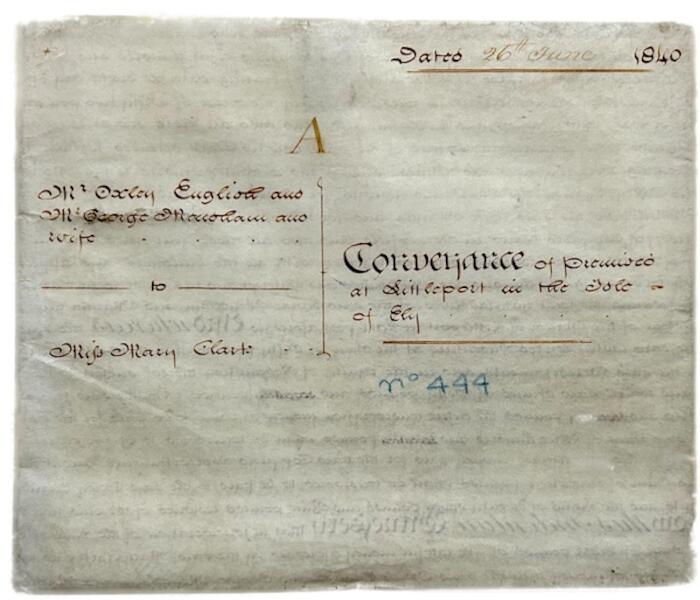 Dated 26th June 1840
A
Mr. Oxley English and
Mr. George Marsham and
wife
to
Miss Mary Clark
Conveyance of Premises
at Littleport in the Isle
of Ely
No 444